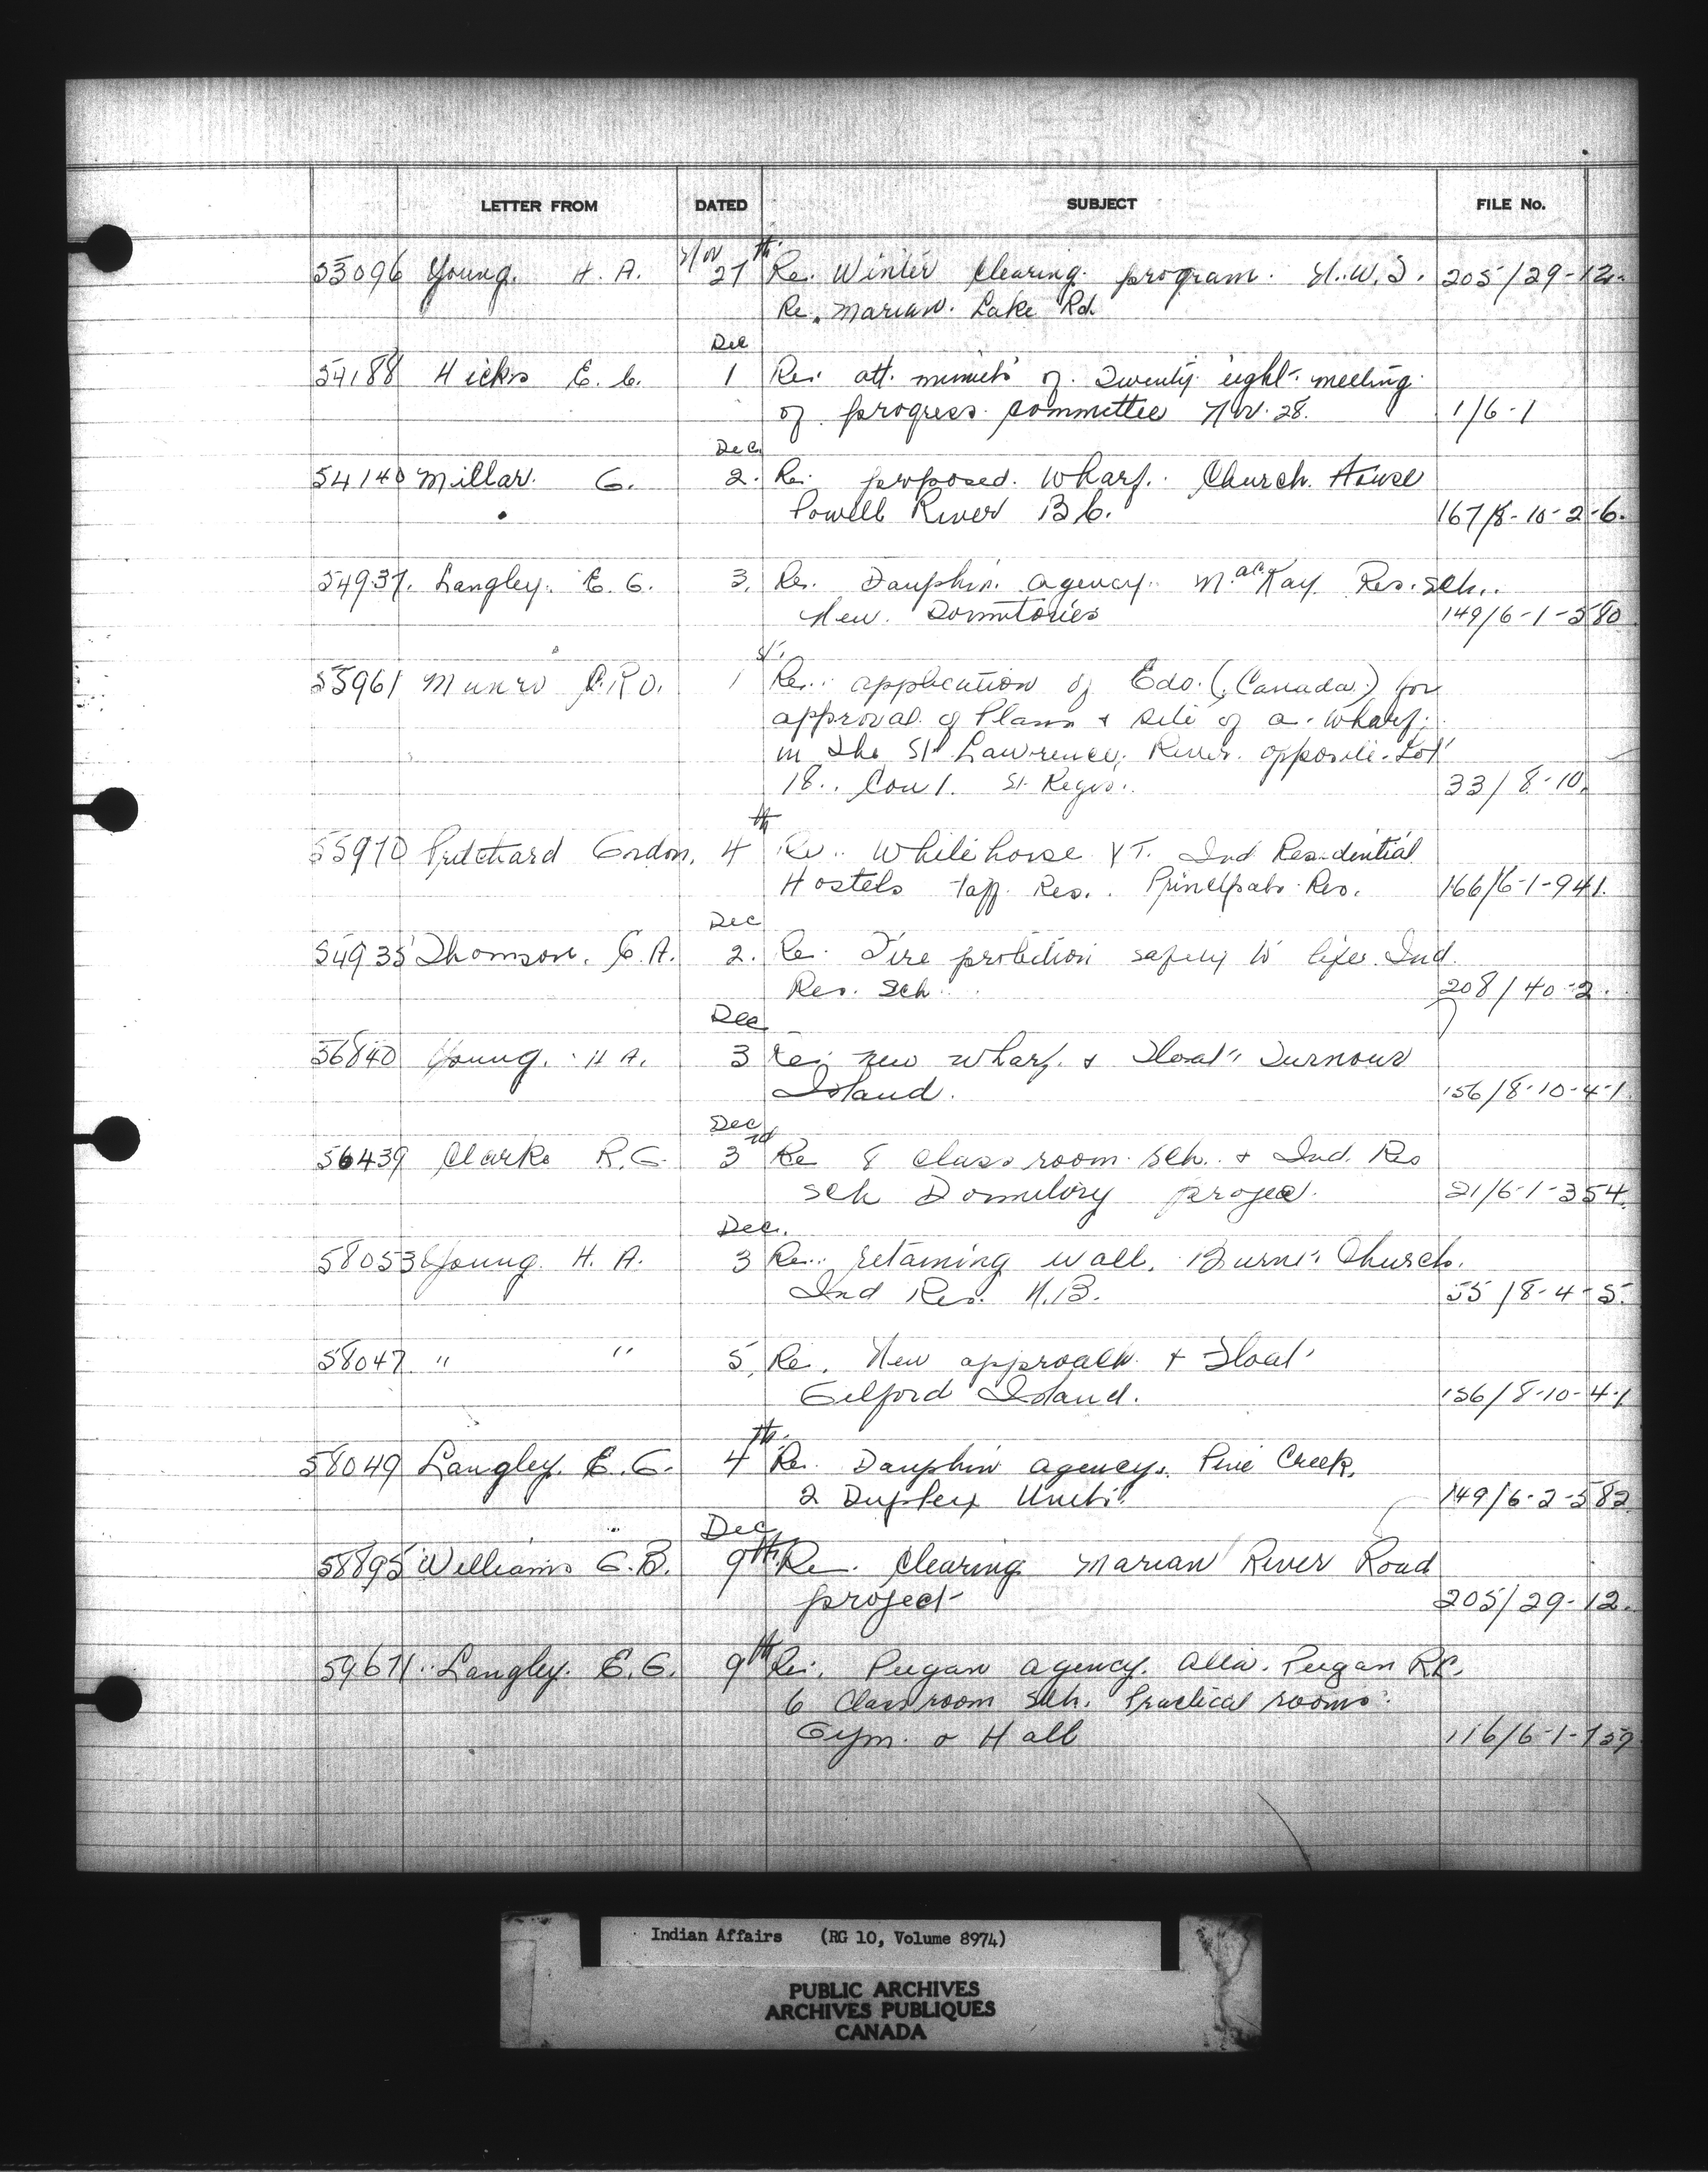 LETTER FROM DATED SUBJECT FILE No.
53096 Young. H. A. Nov 27th Re. Winter Clearing program. N.W.T. 205/29-12.
Re. Marian Lake Rd.
Dec
54188 Hicks E. C. 1 Re: att. minuts of Twenty eight meeting
of progress committee Nov. 28. 1/6-1
Dec
54140 Millar. G. 2. Re: proposed. Wharf. Church House
Powell River B C. 167/8-10-2-6.
54937. Langley. E. G. 3. Re. Dauphin agency. MacKay Res. Sch..
New. Dormitories 149/6-1-580
55961 Munro 1st Re: application of Edo. (Canada) for
approval of Plans + site of a Wharf.
in the St Lawrence River. opposite Lot
18.. Con 1. St. Regis. 33/8-10.
55970 Pritchard Gordon. 4th Re.. Whitehorse YT. Ind Residential
Hostels Res.. Principals Res. 166/6-1-941.
Dec
54935 Thomson. 2. Re. Fire safety to Ind.
Res. Sch. 208/40-2.
Dec
56840 Young. H A. 3 Re: new wharf. + Float Turnour
Island. 156/8-10-4-1
Dec
56439 Clarke R.G. 3rd Re 8 class room sch. + Ind. Res
sch Dormitory 21/6-1-354.
Dec.
58053 Young H. A. 3 Re.. retaining wall. Burnt Church.
Ind Res. N.B. 55/8-4-5.
58047. " " 5. Re. New approach + Float
Gilford Island. 156/8-10-4-1
58049 Langley. E. G. 4th Re. Dauphin agency. Pine Creek.
2 Duplex Units. 149/6-2-582
Dec
58895 Williams G. B. 9th. Re. Clearing Marian River Road
project 205/29-12.
59671 Langley. E. G. 9th Re. Peigan agency. Alta. Peigan R.C.
6 Classroom sch. Practical rooms.
Gym. o Hall 116/6-1-759
Indian Affairs (RG 10, Volume 8974)
PUBLIC ARCHIVES
ARCHIVES PUBLIQUES
CANADA